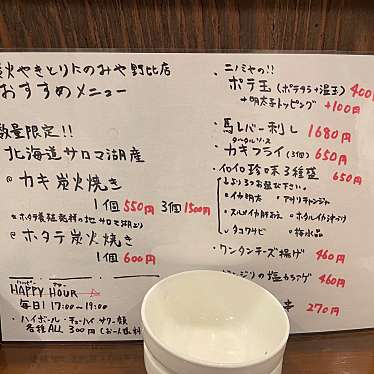 炭火やきとりにのみや 野比店
おすすめメニュー
数量限定!!
北海道サロマ湖産
カキ炭火焼き
1個 550円 3個 1500円
ホタテ炭火焼き
1個 600円
ハッピー アワー
HAPPY HOUR
毎日! 17:00〜19:00
ハイボール・チューハイ サワー類
各種ALL 300円
・ニノミヤの!!
ポテ玉 (ポテサラ+温玉) 400円
→明太子トッピング +100円
・馬レバー刺し 1680円
・カキフライ (3個) 650円
・イロイロ珍味3種盛 650円
より3つお選び下さい。
イカ明太
ホタルイカ沖づけ
タコワサビ
梅水晶
・ワンタンチーズ揚げ 460円
の塩カラアゲ 460円
270円